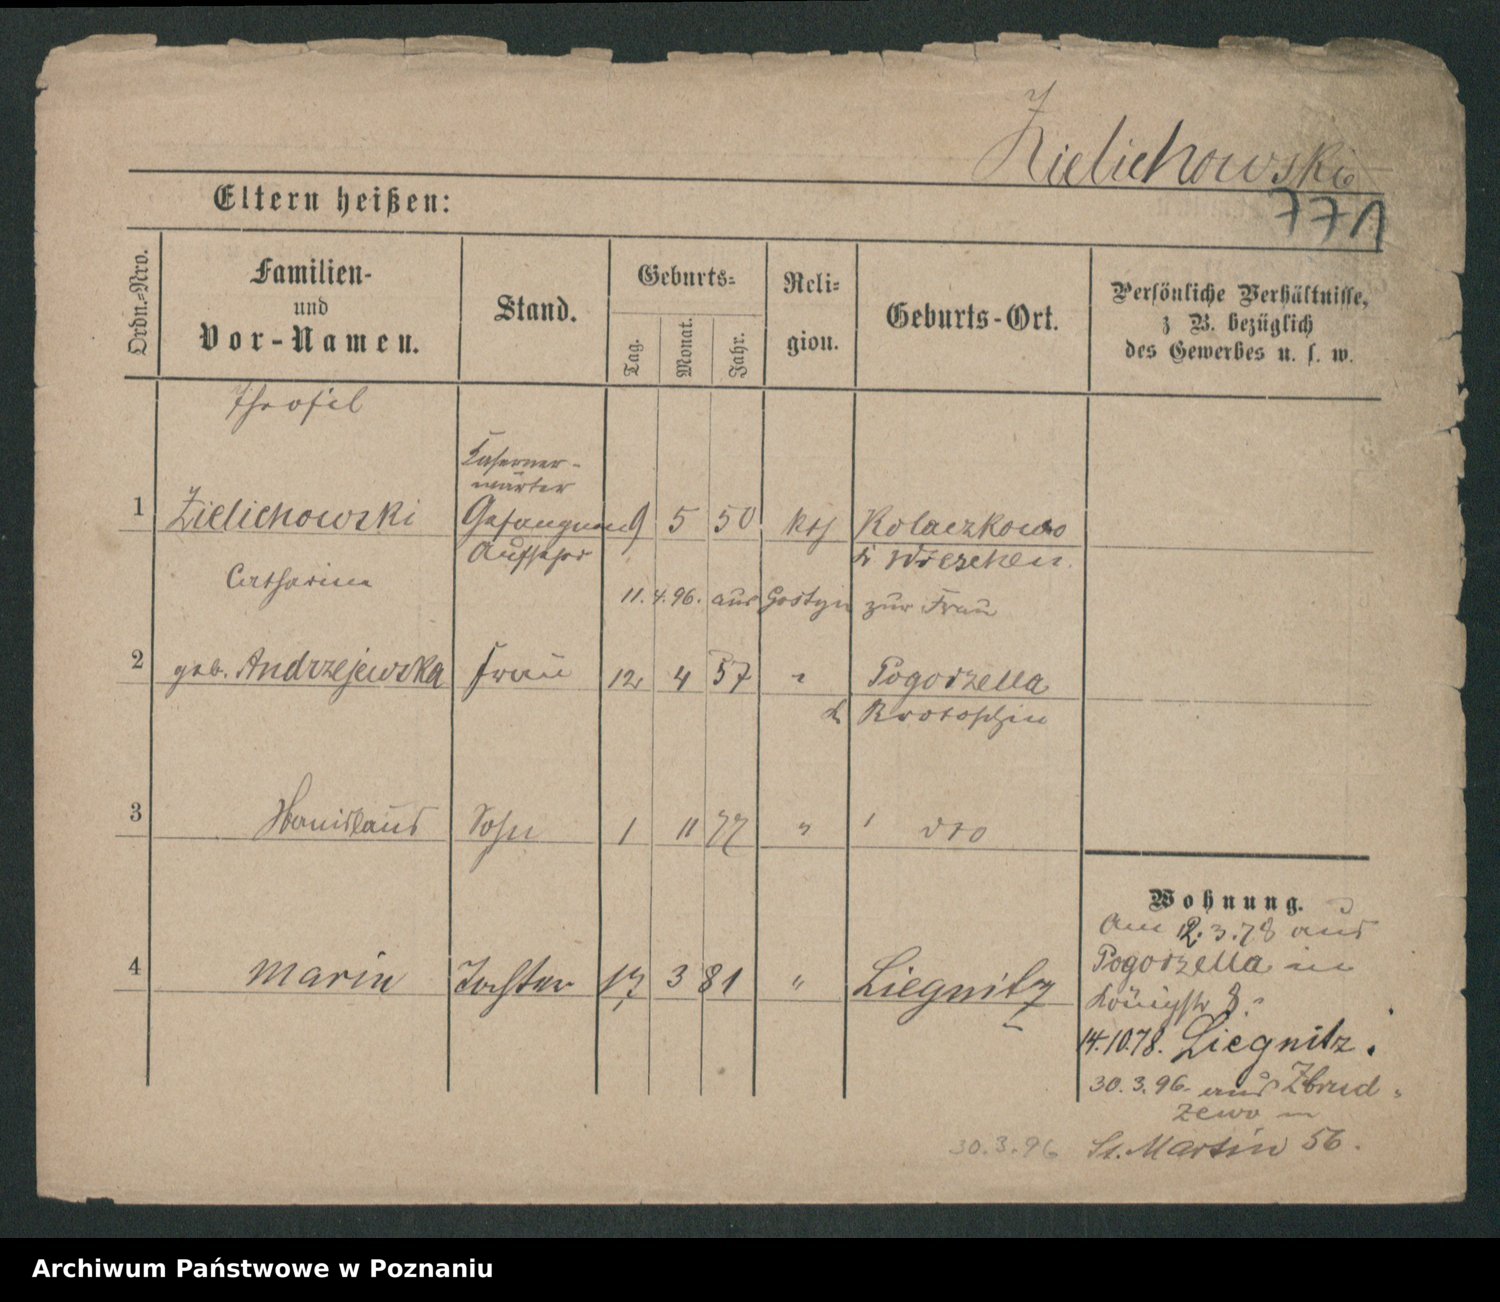 Zielichowski
771
Eltern heißen:
Ordn.=Nro.
Familien-
und
Vor-Namen.
Stand.
Geburts=
Tag.
Monat.
Jahr.
Reli=
gion.
Geburts-Ort.
Persönliche Verhältnisse,
z B. bezüglich
des Gewerbes u. s. w.
Theofil
Kaserner-
wärter
1 Zielichowski Gefangnen 9 5 50 kth Kolaczkowo
Aufseher Kr Wreschen.
Catharina
11.4.96. aus Gostyn zur Frau
2 geb. Andrzejewska Frau 12 4 57 " Pogorzella
Kr Krotoschin
3 Stanislaus Sohn 1 11 77 " dto
4 Marie Tochter 17 3 81 " Liegnitz
Wohnung.
Am 12.3.78 aus
Pogorzella in
Königstr 8.
14.10.78. Liegnitz.
30.3.96. aus Zbrud-
zewo in
30.3.96 St. Martin 56.
Archiwum Państwowe w Poznaniu